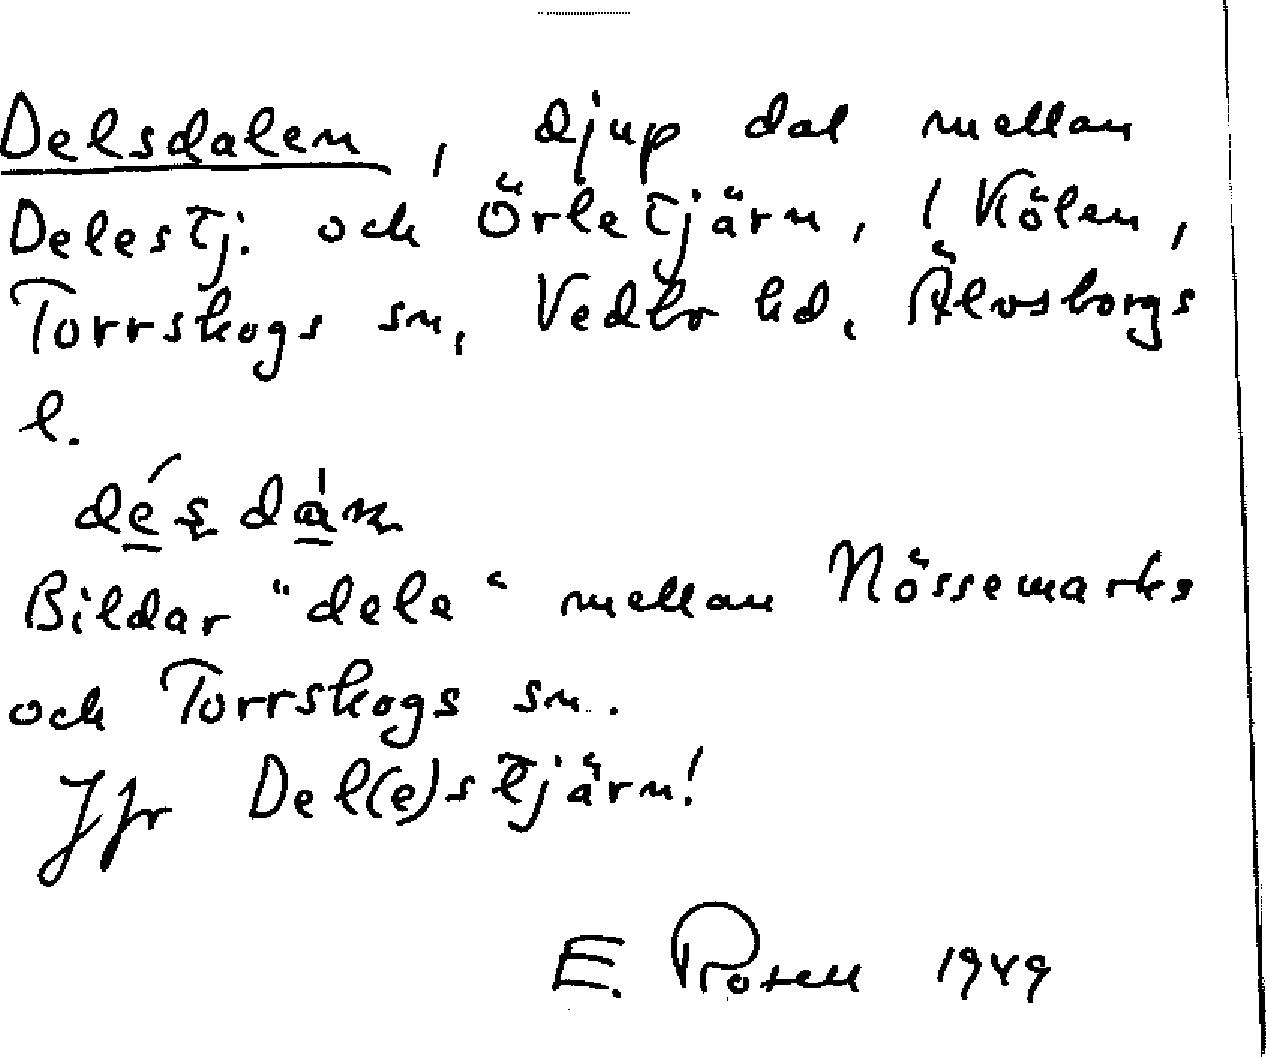 Delsdalen, djup dal mellan
Delestj. och Örletjärn, i Kölen,
Torrskogs sn, Vedbo hd, Älvsborgs
l.
Bildar "dele" mellan Nössemarks
och Torrskogs sn.
Jfr Del(e)stjärn!
E. Rosell 1949